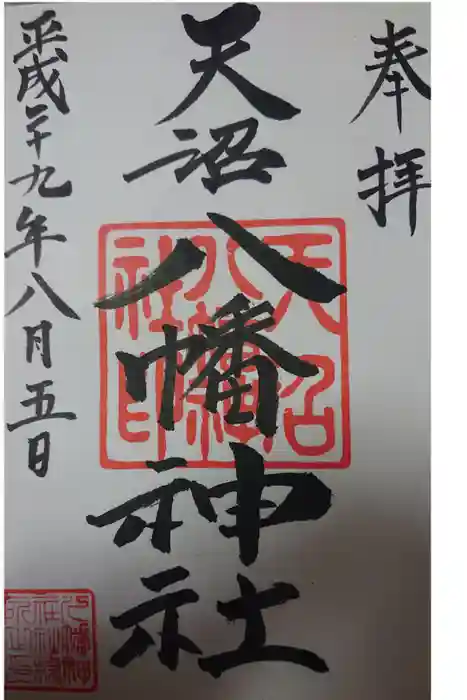 奉拝
天沼八幡神社
天沼八幡神社印
平成二十九年八月五日